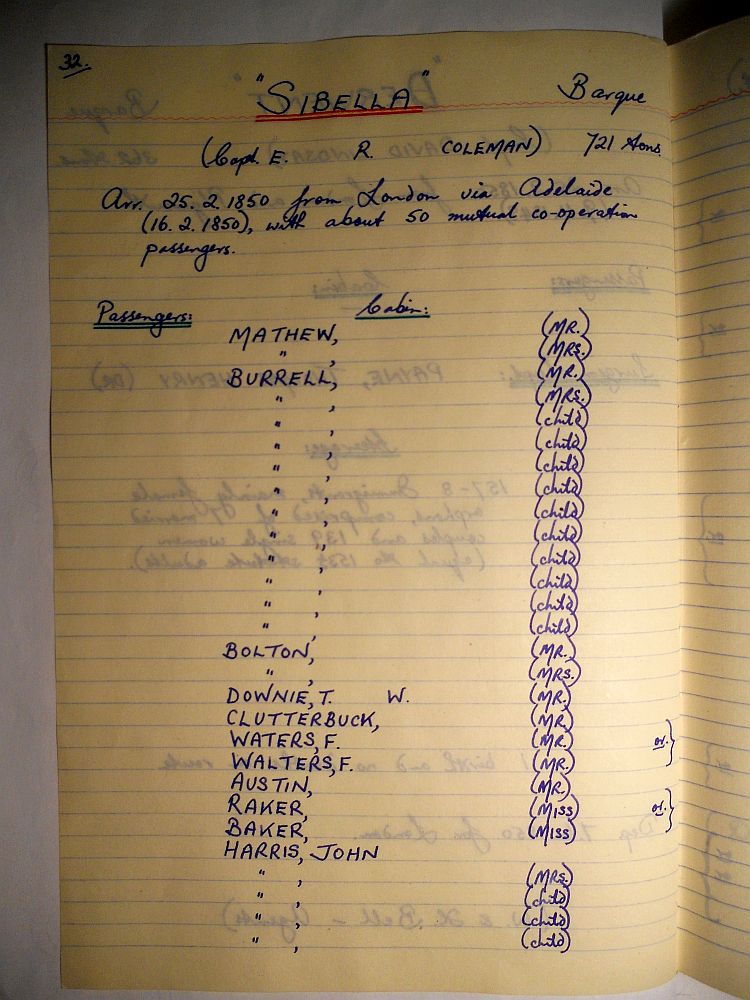 32.
"SIBELLA" Barque
(Capt. E. R. COLEMAN) 721 tons
Arr. 25.2.1850 from London via Adelaide
(16.2.1850), with about 50 mutual co-operation
passengers.
Passengers: Cabin:
MATHEW, (MR.)
" , (MRS.)
BURRELL, (MR.)
" , (MRS.)
" , (child)
" , (child)
" , (child)
" , (child)
" , (child)
" , (child)
" , (child)
" , (child)
" , (child)
" , (child)
BOLTON, (MR.)
" , (MRS.)
DOWNIE, T. W. (MR.)
CLUTTERBUCK, (MR.)
WATERS, F. (MR.) or. }
WALTERS, F. (MR.)
AUSTIN, (MR.)
RAKER, (MISS) or. }
BAKER, (MISS)
HARRIS, JOHN
" , (MRS.)
" , (child)
" , (child)
" , (child)